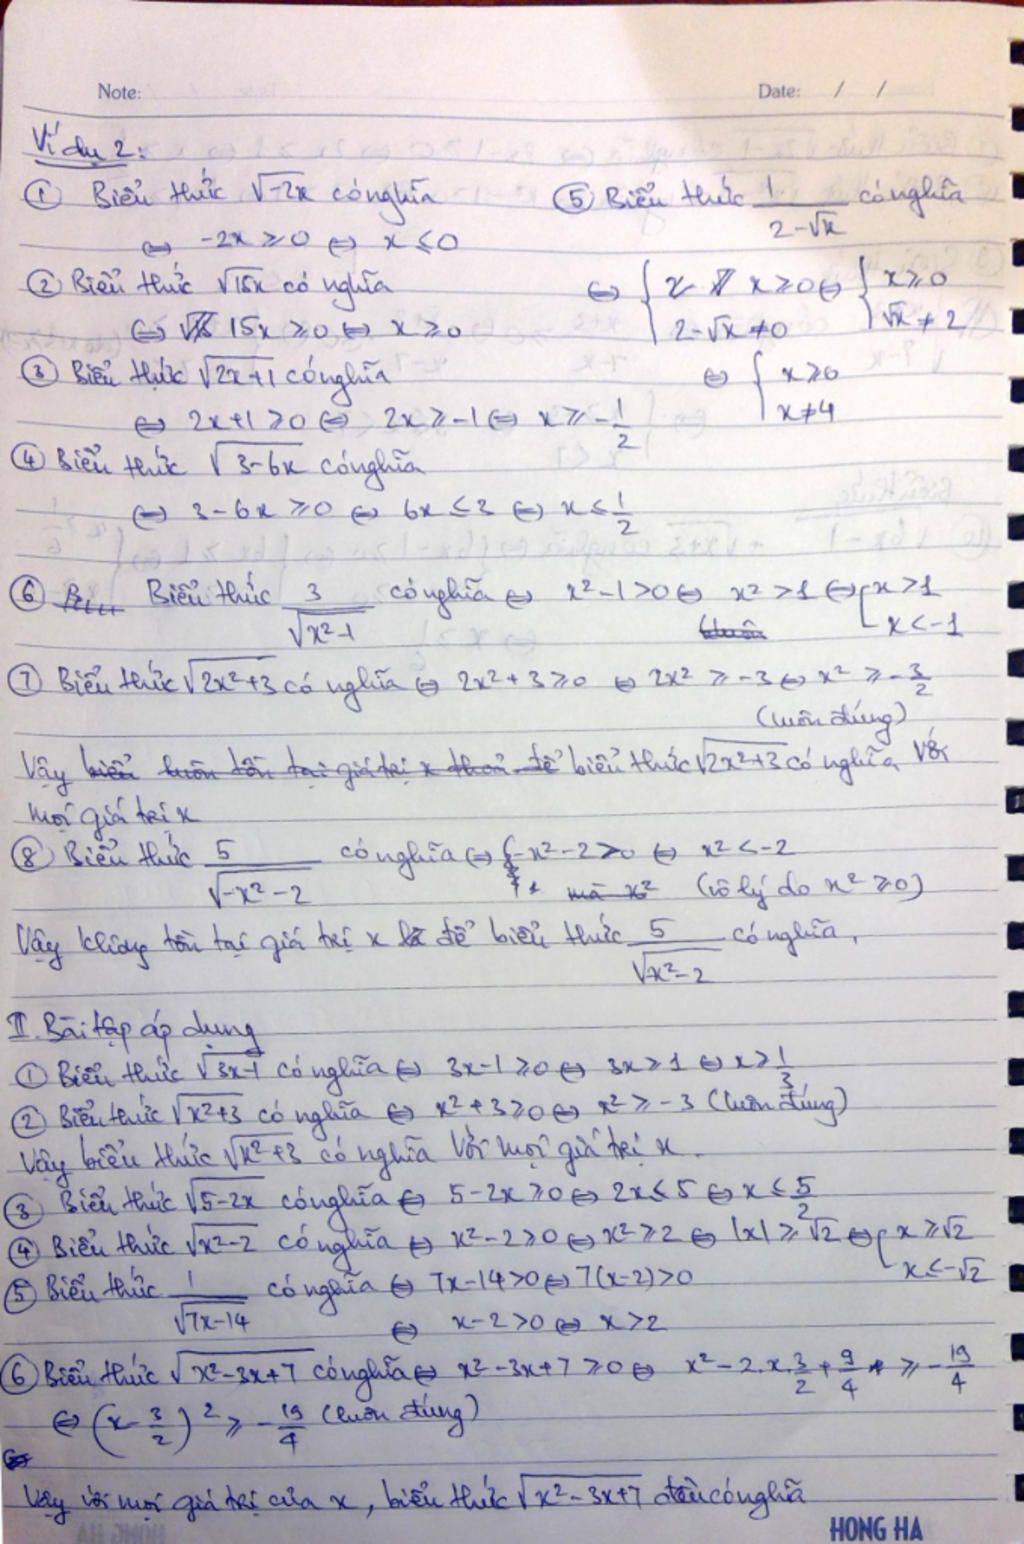 Note: Date: / /
Ví dụ 2:
① Biểu thức √-2x có nghĩa
⇔ -2x ≥ 0 ⇔ x ≤ 0
⑤ Biểu thức 1/(2-√x) có nghĩa
⇔ { x ≥ 0 ; 2-√x ≠ 0 ⇔ { x ≥ 0 ; √x ≠ 2
⇔ { x ≥ 0 ; x ≠ 4
② Biểu thức √15x có nghĩa
⇔ 15x ≥ 0 ⇔ x ≥ 0
③ Biểu thức √(2x+1) có nghĩa
⇔ 2x+1 ≥ 0 ⇔ 2x ≥ -1 ⇔ x ≥ -1/2
④ Biểu thức √(3-6x) có nghĩa
⇔ 3-6x ≥ 0 ⇔ 6x ≤ 3 ⇔ x ≤ 1/2
⑥ Biểu thức 3/√(x²-1) có nghĩa ⇔ x²-1 > 0 ⇔ x² > 1 ⇔ [ x > 1 ; x < -1
⑦ Biểu thức √(2x²+3) có nghĩa ⇔ 2x²+3 ≥ 0 ⇔ 2x² ≥ -3 ⇔ x² ≥ -3/2
(luôn đúng)
Vậy biểu thức √(2x²+3) có nghĩa với
mọi giá trị x
⑧ Biểu thức 5/√(-x²-2) có nghĩa ⇔ -x²-2 > 0 ⇔ x² < -2
(vô lý do x² ≥ 0)
Vậy không tồn tại giá trị x để biểu thức 5/√(-x²-2) có nghĩa.
II. Bài tập áp dụng
① Biểu thức √(3x-1) có nghĩa ⇔ 3x-1 ≥ 0 ⇔ 3x ≥ 1 ⇔ x ≥ 1/3
② Biểu thức √(x²+3) có nghĩa ⇔ x²+3 ≥ 0 ⇔ x² ≥ -3 (luôn đúng)
Vậy biểu thức √(x²+3) có nghĩa với mọi giá trị x.
③ Biểu thức √(5-2x) có nghĩa ⇔ 5-2x ≥ 0 ⇔ 2x ≤ 5 ⇔ x ≤ 5/2
④ Biểu thức √(x²-2) có nghĩa ⇔ x²-2 ≥ 0 ⇔ x² ≥ 2 ⇔ |x| ≥ √2 ⇔ [ x ≥ √2 ; x ≤ -√2
⑤ Biểu thức 1/√(7x-14) có nghĩa ⇔ 7x-14 > 0 ⇔ 7(x-2) > 0
⇔ x-2 > 0 ⇔ x > 2
⑥ Biểu thức √(x²-3x+7) có nghĩa ⇔ x²-3x+7 ≥ 0 ⇔ x²-2.x.3/2+9/4 ≥ -19/4
⇔ (x-3/2)² ≥ -19/4 (luôn đúng)
Vậy với mọi giá trị của x, biểu thức √(x²-3x+7) đều có nghĩa
HONG HA